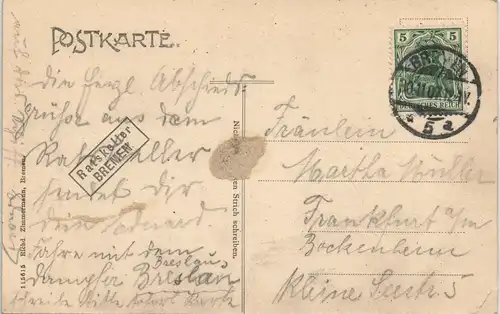 POSTKARTE.
Die herzl. Abschieds
grüße aus dem
Ratskeller
sendet dir
dein
Fahre mit dem
Breslau
Dampfer Breslau
schreibe bitte sofort Karte
Ratskeller
BREMEN
Nic
en Strich schreiben.
115615 Zimmermann, Bremen
5
BREMEN
DEUTSCHES REICH
* 5 a
Fräulein
Martha Müller
Frankfurt a/m
Bockenheim
Kleine Seestr 5